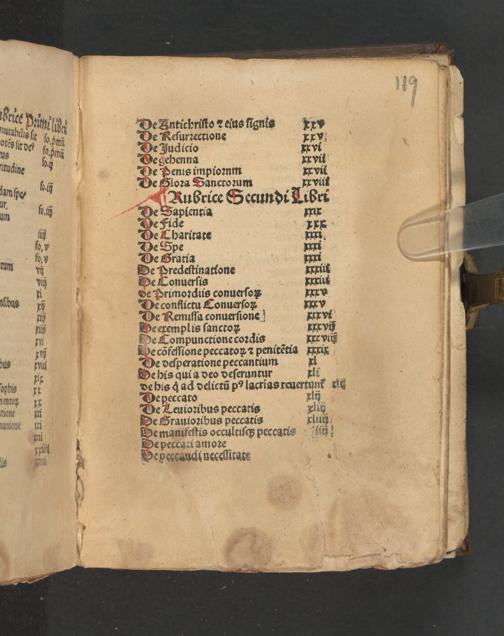 119
De Antichristo ⁊ eius signis xxv
De Resurrectione xxv
De Judicio xxvi
De gehenna xxvii
De Penis impiorum xxvii
De Glora Sanctorum xxviii
Rubrice Secundi Libri
De Sapientia xxix
De Fide xxx
De Charitate xxxi
De Spe xxxi
De Gratia xxxi
De Predestinatione xxxiii
De Conuersis xxxiiii
de Primordiis conuersoꝝ xxxv
De conflictu Conuersoꝝ xxxv
De Remissa conuersione xxxvi
De exemplis sanctoꝝ xxxvii
De Compunctione cordis xxxviii
De cõfessione peccatoꝝ ⁊ penitẽtia xxxix
De desperatione peccantium xl
De his qui a deo deseruntur xli
de his q̇ ad delictũ pꝰ lacrias reuertunť xlij
De peccato xlij
De Leuioribus peccatis xliij
De Grauioribus peccatis xliiij
De manifestis occultisqꝫ peccatis
De peccati amore
De peccandi necessitate